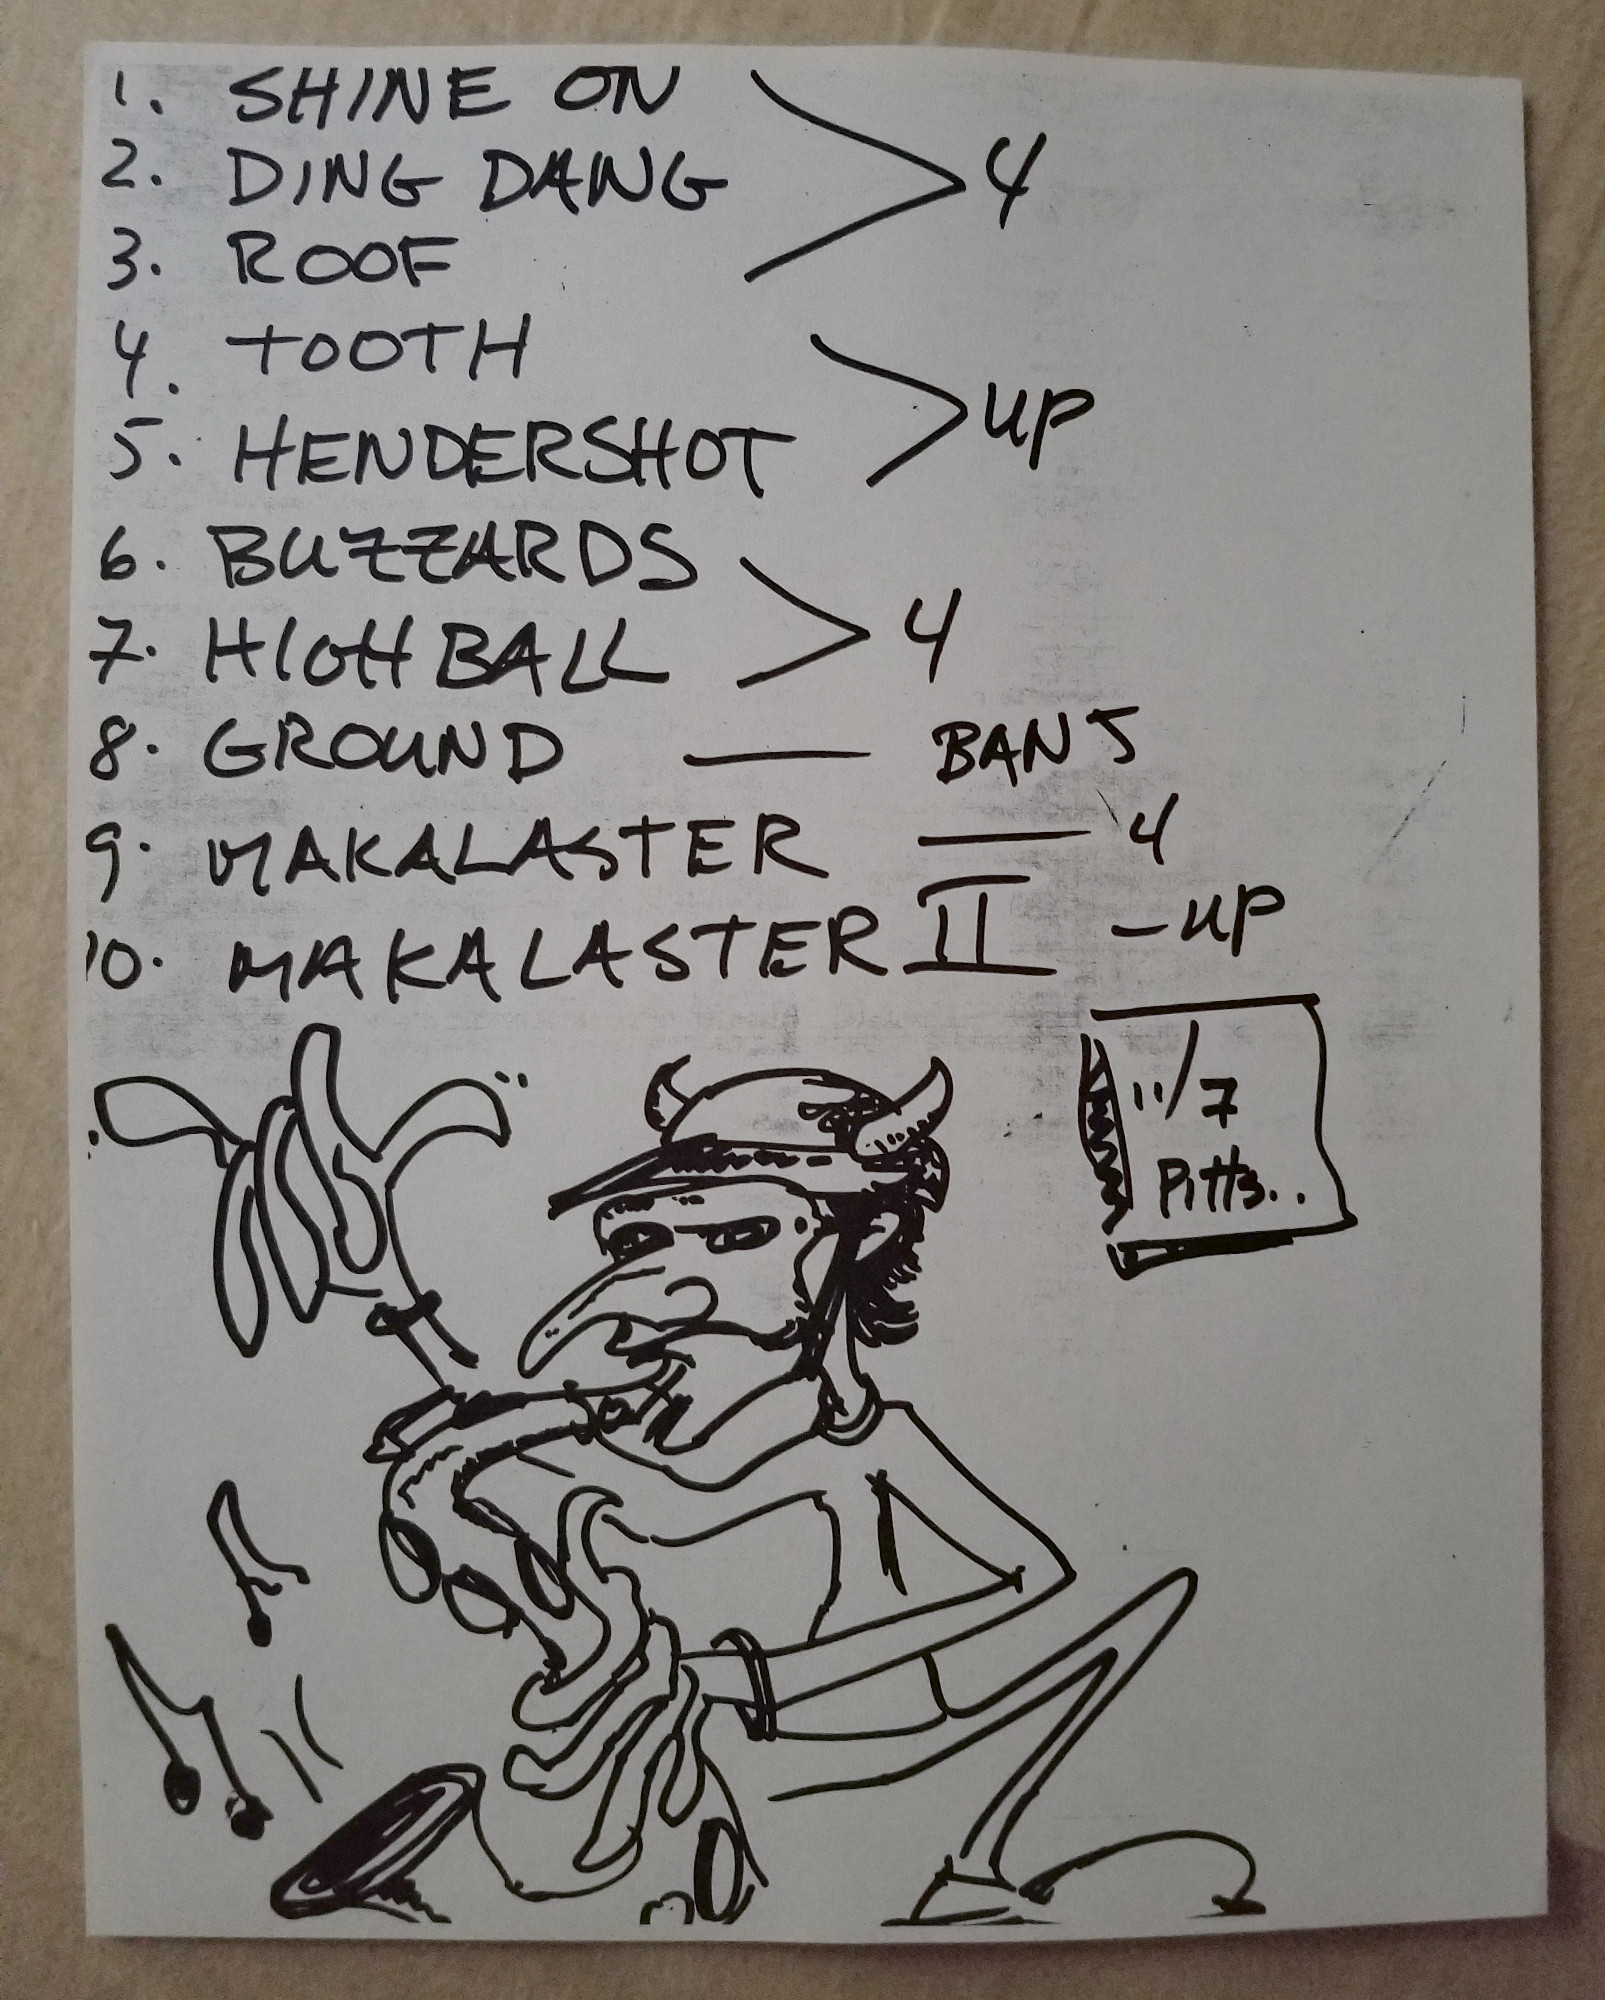 1. SHINE ON
2. DING DANG
3. ROOF
4
4. TOOTH
5. HENDERSHOT
UP
6. BUZZARDS
7. HIGHBALL
4
8. GROUND — BAN 5
9. MAKALASTER — 4
10. MAKALASTER II - UP
11/7
Pitts..